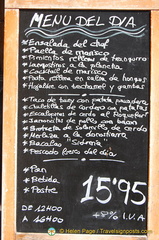 MENU DEL DIA
* Ensalada del chef
* Paella de marisco
* Pimientos rellenos de txangurro
* Langostinos a la plancha
* Cocktail de marisco
* Pasta rellena en salsa de hongos
* Hojaldre con bechamel y gambas
* Taco de atun con patata panadera
* Chuletitas de cordero con patatas
* Escalopines de cerdo al Roquefort
* Jarrete de pollo con bacon
* Brocheta de solomillo de cerdo
* Merluza a la donostiarra
* Bacalao "Sidreria"
* Pescado fresco del dia
* Pan
* Bebida
* Postre
15'95
+8% I.V.A
DE 12H00
A 16H00
© Helen Page